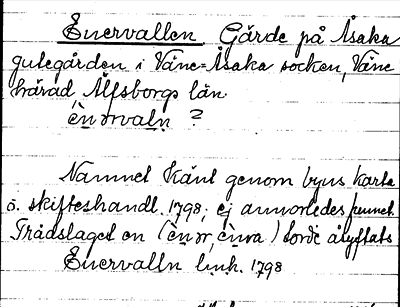 Enervallen Gärde på Åsaka
gulegården i Väne-Åsaka socken, Väne
härad Älfsborgs län
ènərvaln ?
Namnet känt genom byns karta
o. skifteshandl. 1798, ej annorledes funnet.
Trädslaget en (ènər, ènra) torde åsyftats
Enervalln link. 1798